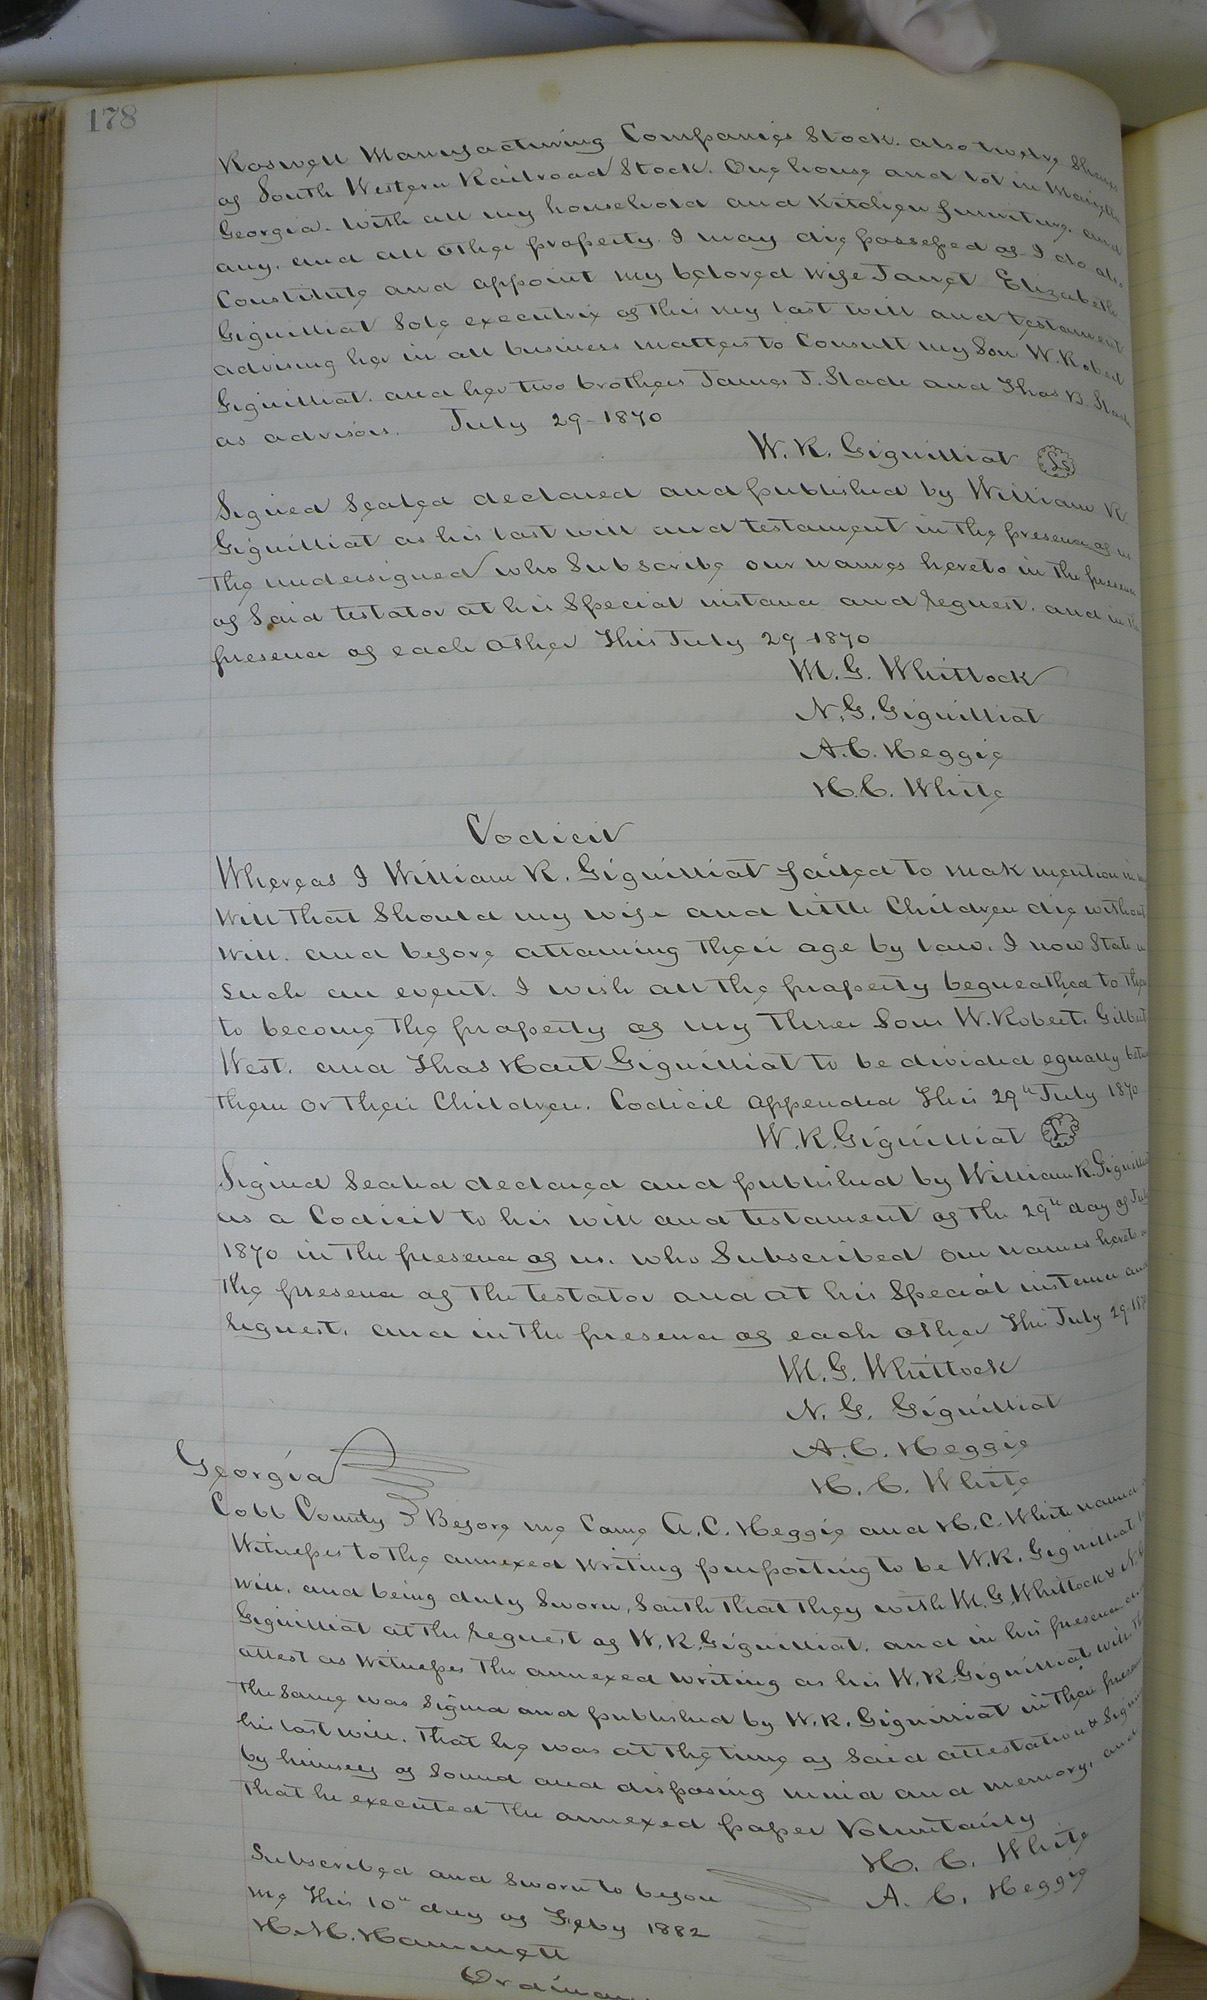 178
Roswell Manufacturing Companies Stock. also twelve Shares
of South Western Railroad Stock. One house and lot in
Georgia. with all my household and Kitchen furniture. and
any. and all other property I may die possessed of I do also
Constitute and appoint my beloved wife Janet Elizabeth
Gignilliat Sole executrix of this my last will and testament
advising her in all business matters to Consult my Son W. Robert
Gignilliat. and her two brothers James J. Slade and Thos B. Slade
as advisors. July 29-1870
W. R. Gignilliat LS
Signed Sealed declared and published by William R.
Gignilliat as his last will and testament in the presence of us
the undersigned who Subscribe our names hereto in the presence
of Said testator at his Special instance and request. and in the
presence of each other This July 29-1870
M. G. Whitlock
N. G. Gignilliat
A. C. Heggie
H. C. White
Codicil
Whereas I William R. Gignilliat failed to mak mention in my
will that Should my wife and little Children die without
will. and before attaining their age by law. I now State in
such an event. I wish all the property bequeathed to them
to become the property of my three Sons W. Robert. Gilbert
West. and Thos Hart Gignilliat to be divided equally between
them or their Children. Codicil appended This 29th July 1870
W. R. Gignilliat LS
Signed Sealed declared and published by William R. Gignilliat
as a Codicil to his will and testament of the 29th day of July
1870 in the presence of us. who Subscribed our names hereto in
the presence of the testator and at his Special instance and
request. and in the presence of each other This July 29-1870
M. G. Whitlock
N. G. Gignilliat
A. C. Heggie
H. C. White
Georgia
Cobb County } Before me Came A. C. Heggie and H. C. White named
Witnesses to the annexed writing purporting to be W. R. Gignilliat
will. and being duly Sworn, Saith that they with M. G. Whitlock & N. G.
Gignilliat at the request of W. R. Gignilliat. and in his presence did
attest as Witnesses the annexed writing as his W. R. Gignilliat will. That
the Same was Signed and published by W. R. Gignilliat in their presence
his last will. That he was at the time of said attestation & Signing
by himself of Sound and disposing mind and memory. and
that he executed the annexed paper Voluntarily
H. C. White
A. C. Heggie
Subscribed and Sworn to before
me This 10th day of Feby 1882
H. M. Hammett
Ordinary